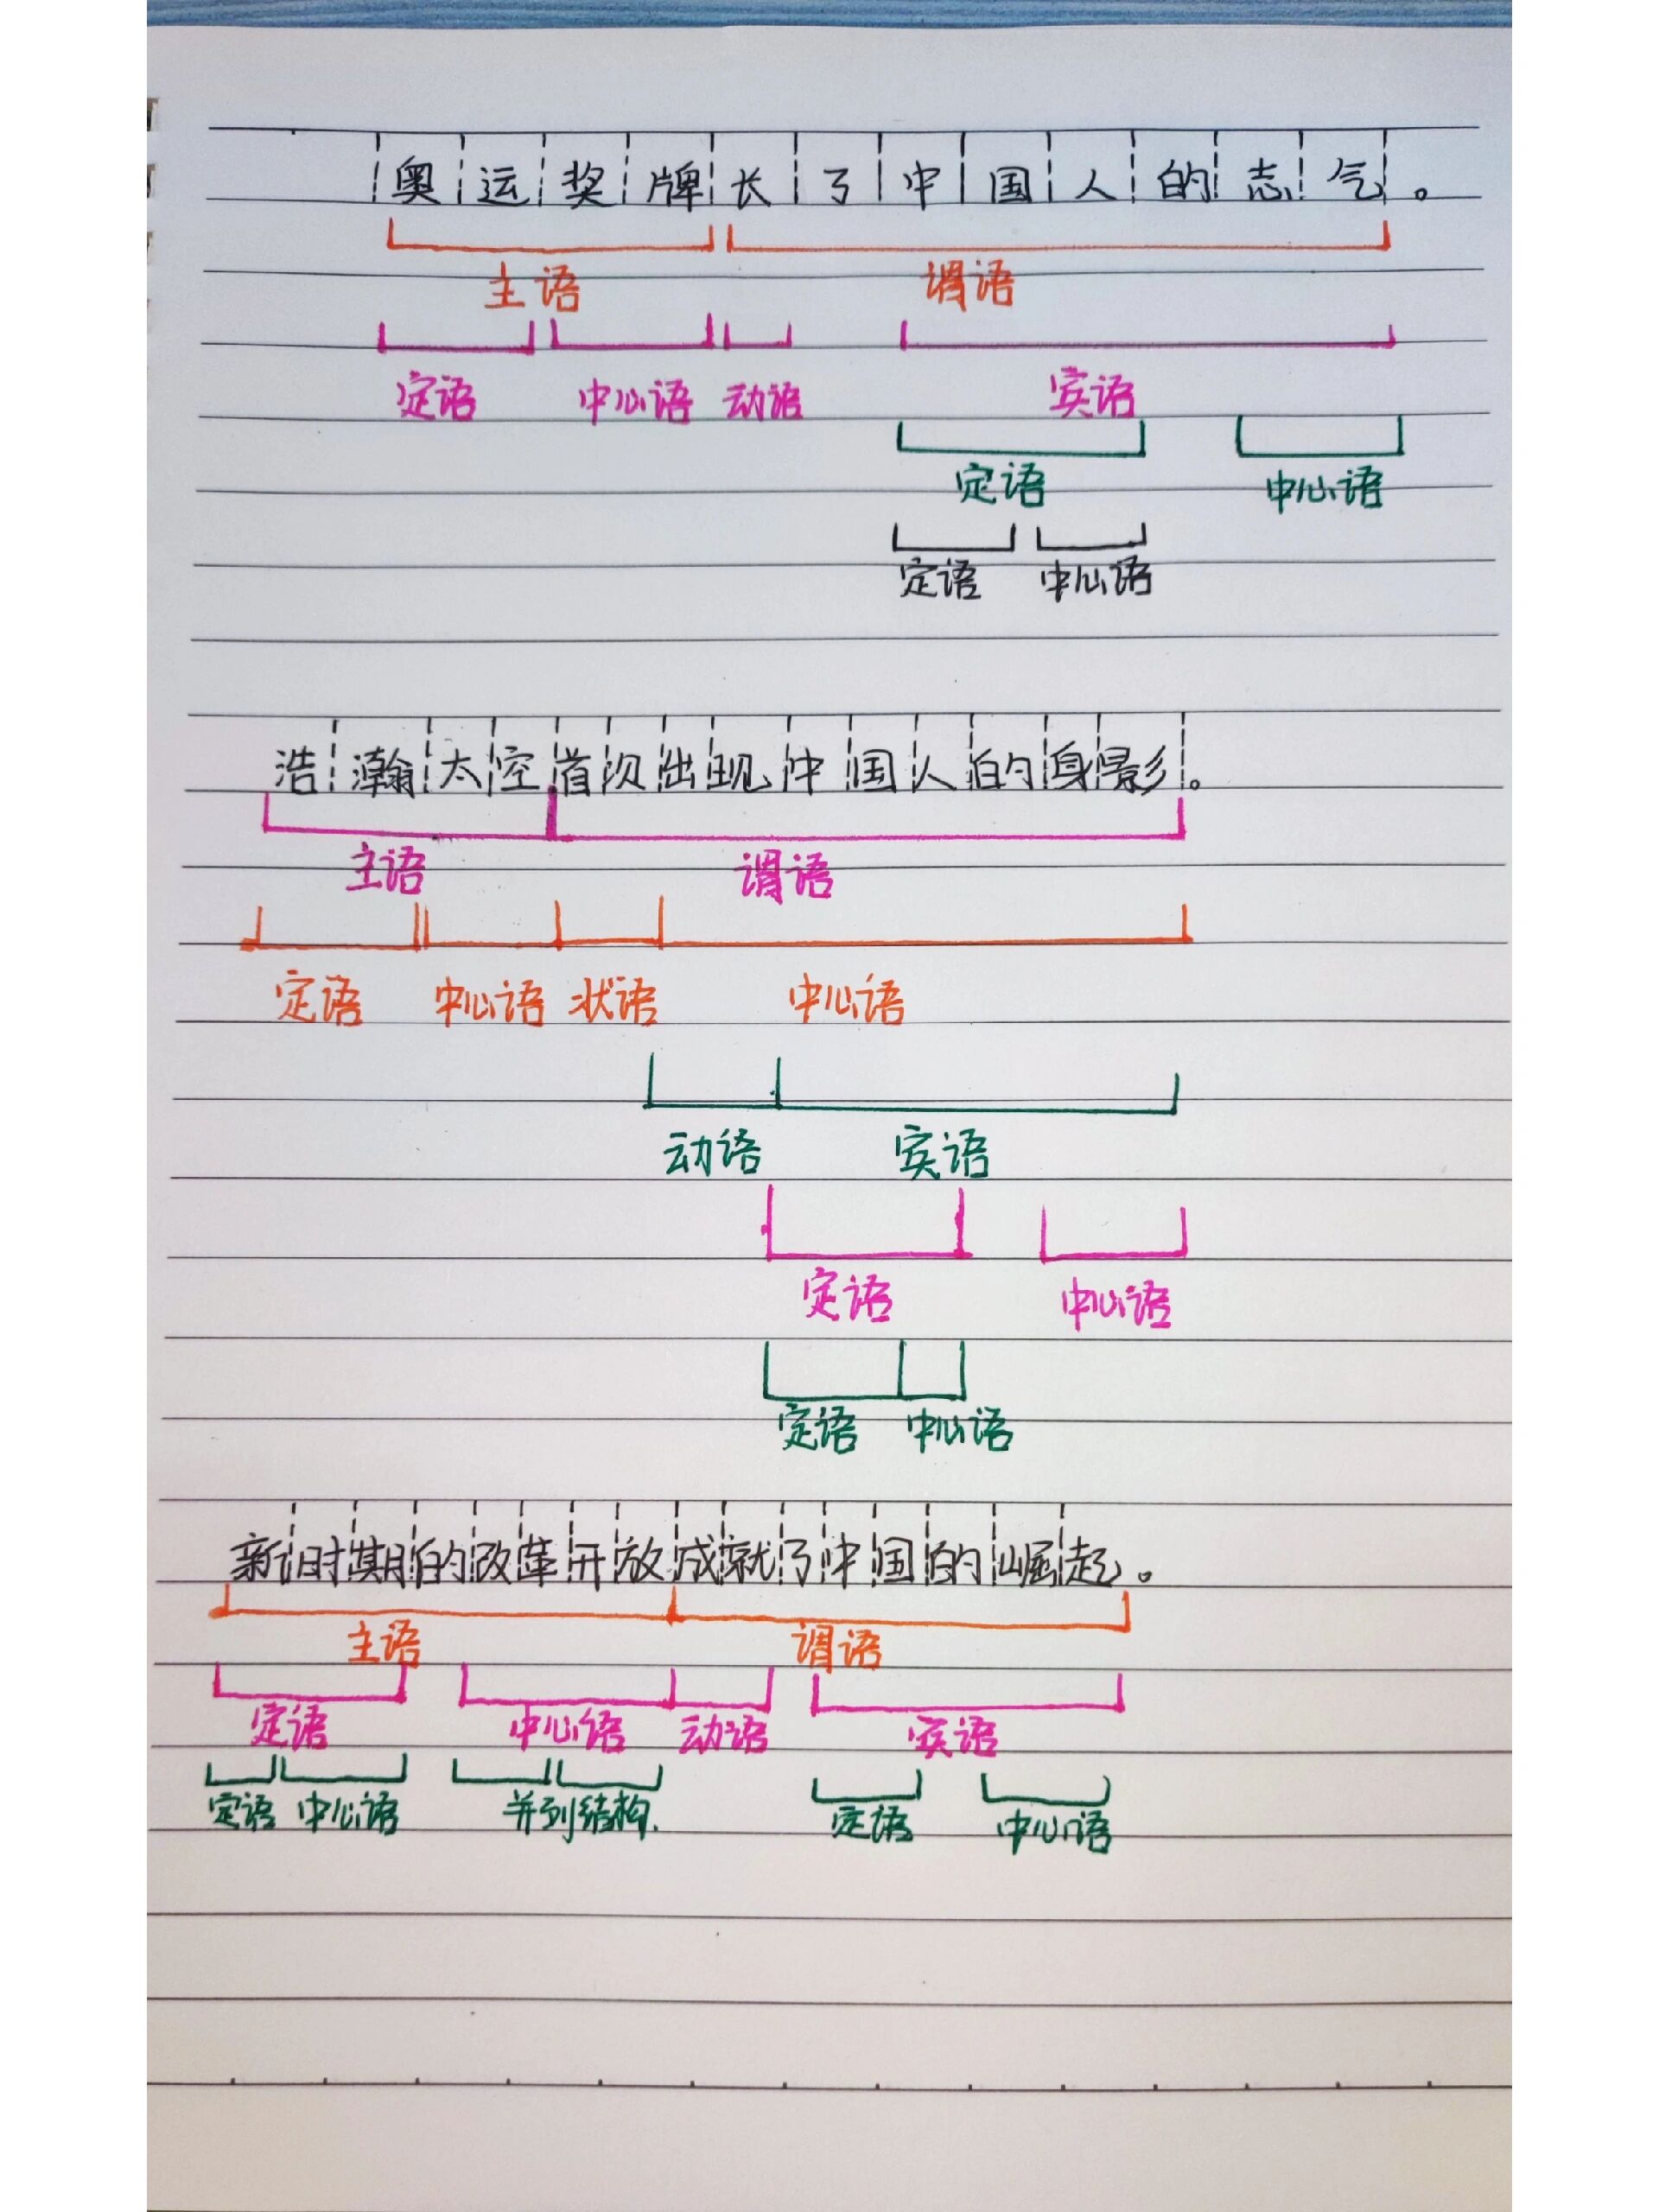 奥运奖牌长了中国人的志气。
主语 谓语
定语 中心语 动语 宾语
定语 中心语
定语 中心语
浩瀚太空首次出现中国人的身影。
主语 谓语
定语 中心语 状语 中心语
动语 宾语
定语 中心语
定语 中心语
新时期的改革开放成就了中国的崛起。
主语 谓语
定语 中心语 动语 宾语
定语 中心语 并列结构 定语 中心语